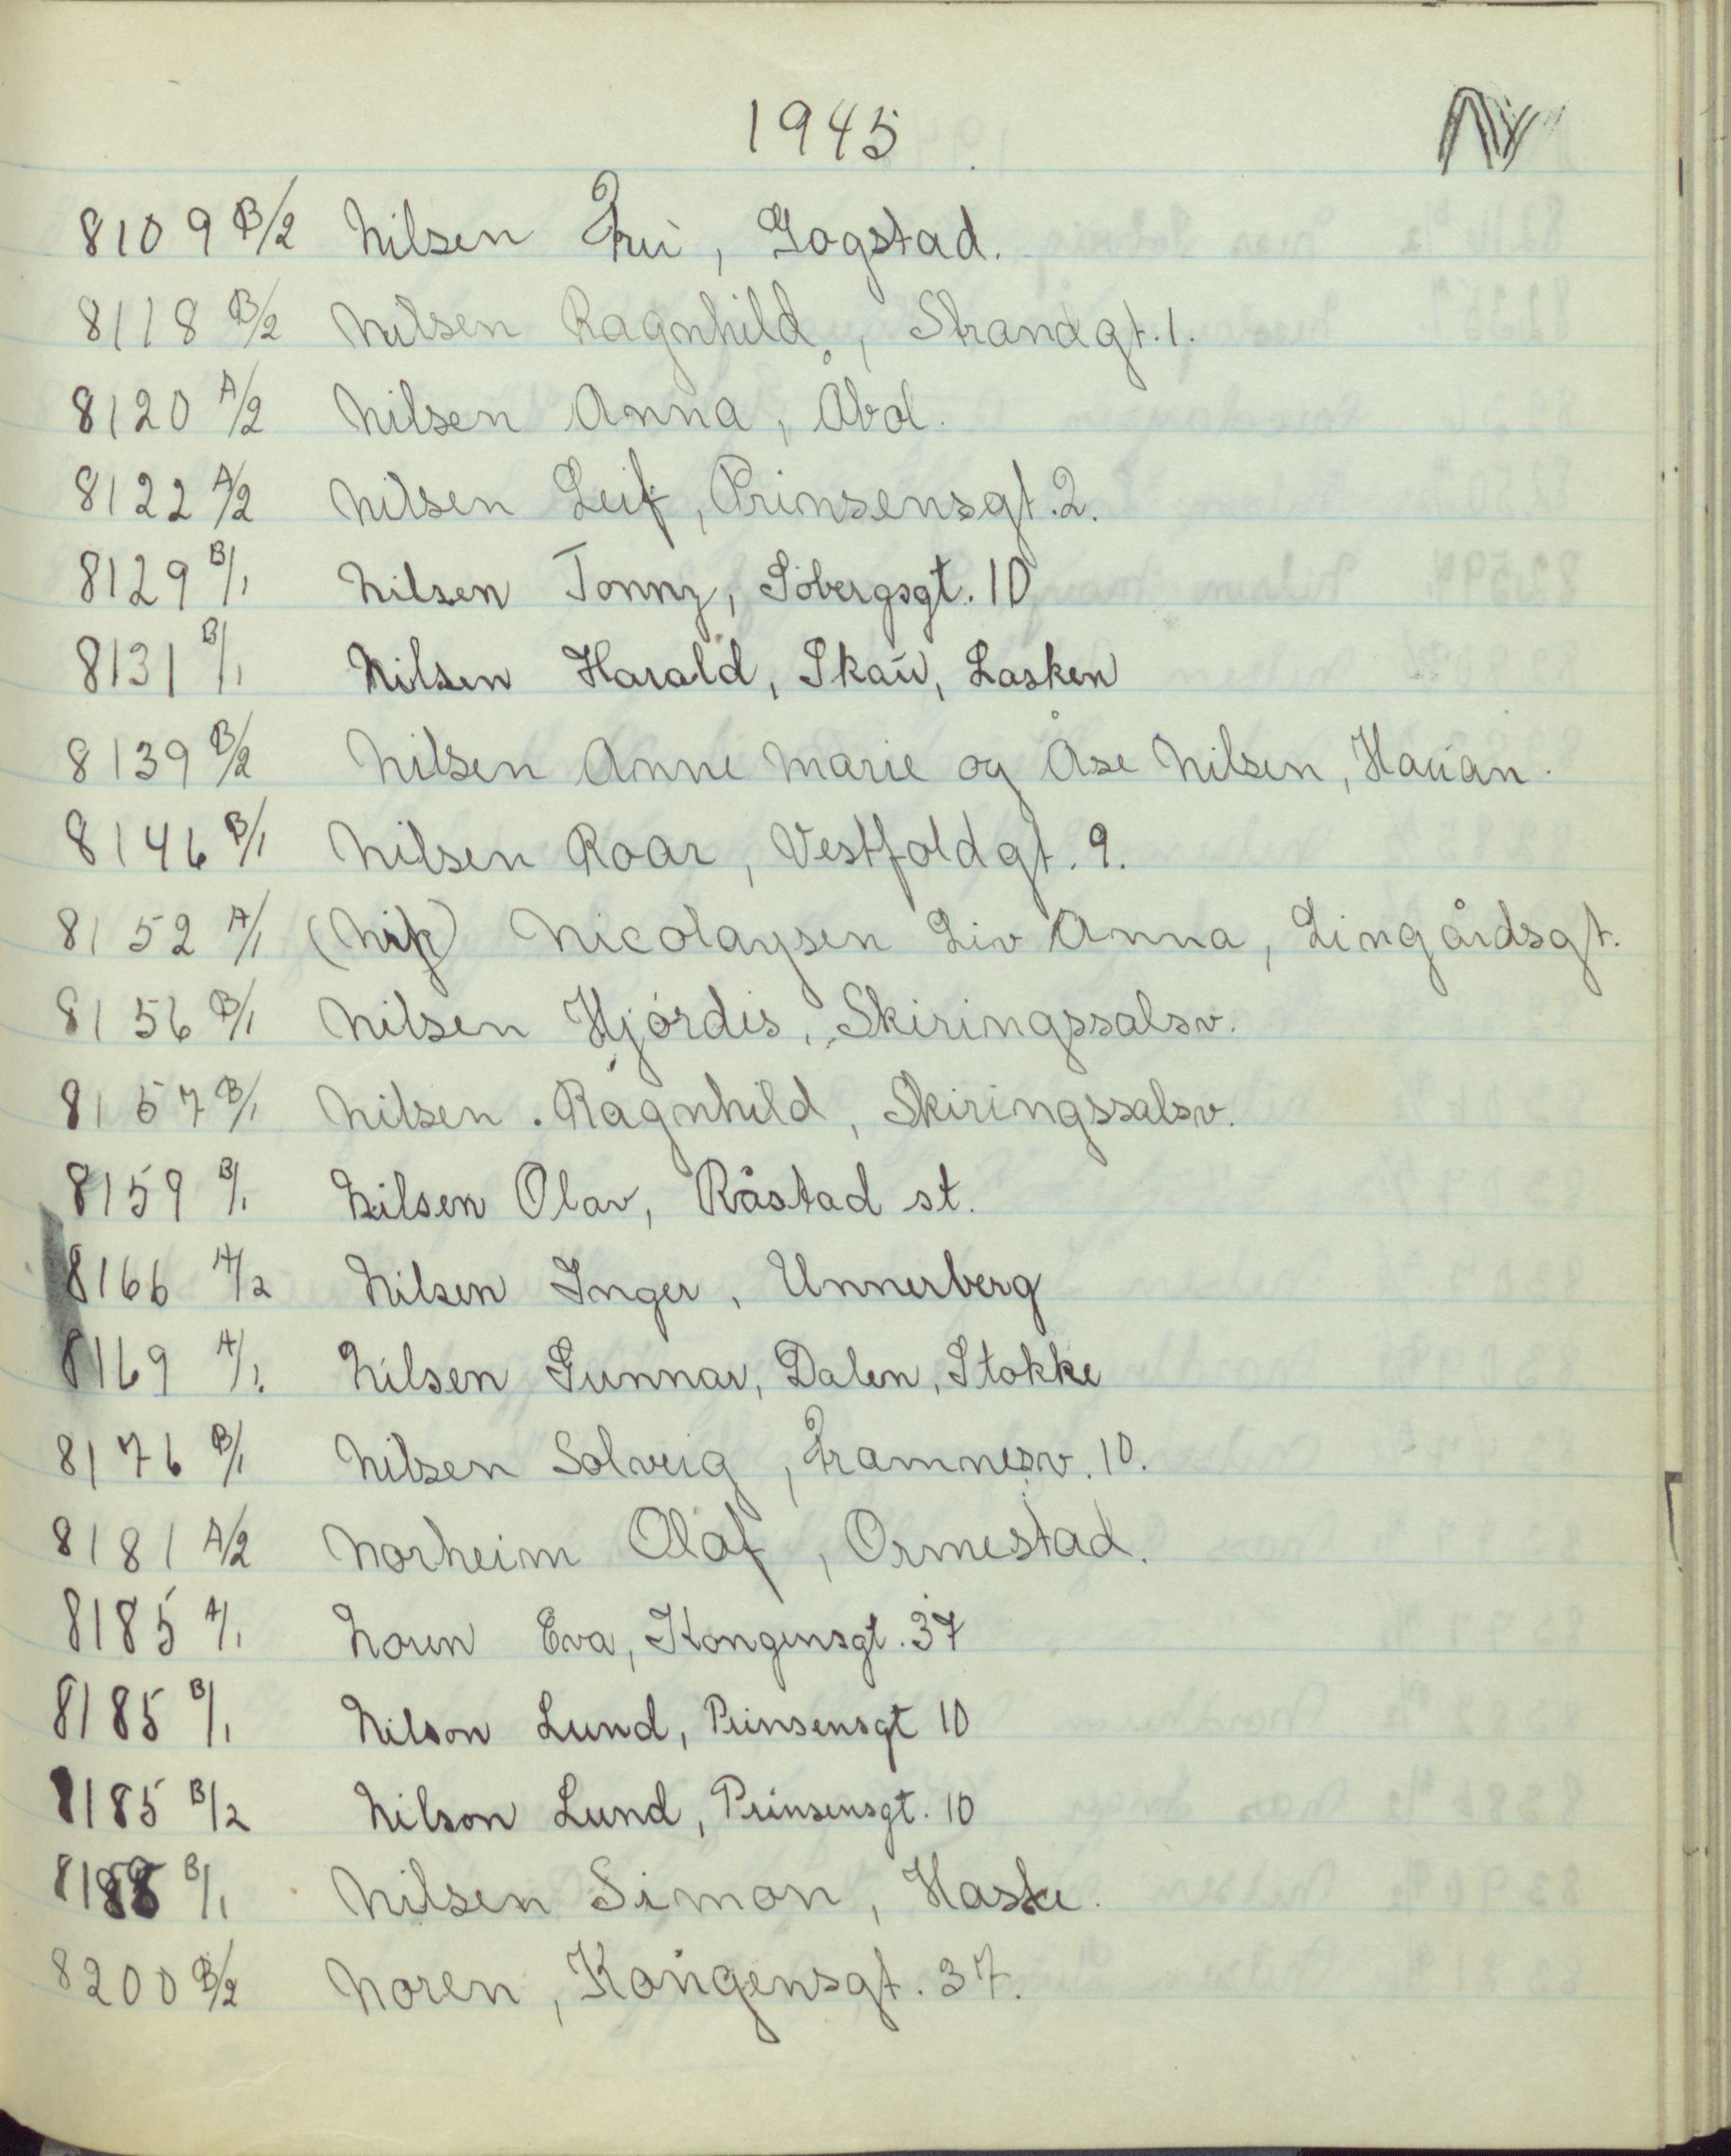 1945
N
8109 B/2 Nilsen Fru, Gogstad.
8118 B/2 Nilsen Ragnhild, Strandgt. 1.
8120 A/2 Nilsen Anna, Åbol.
8122 A/2 Nilsen Leif, Prinsensgt. 2.
8129 B/1 Nilsen Tonny, Söbergsgt. 10
8131 B/1 Nilsen Harald, Skau, Lasken
8139 B/2 Nilsen Anne Marie og Åse Nilsen, Hauan.
8146 B/1 Nilsen Roar, Vestfoldgt. 9.
8152 A/1 (Nik) Nicolaysen Liv Anna, Lingårdsgt.
8156 B/1 Nilsen Hjördis, Skiringssalsv.
8157 B/1 Nilsen Ragnhild, Skiringssalsv.
8159 B/1 Nilsen Olav, Råstad st.
8166 A/2 Nilsen Inger, Unnerberg
8169 A/1. Nilsen Gunnar, Dalen, Stokke
8176 B/1 Nilsen Solveig, Framnesv. 10.
8181 A/2 Norheim Olaf, Ormestad.
8185 A/1 Noren Eva, Kongensgt. 37
8185 B/1 Nilson Lund, Prinsensgt 10
8185 B/2 Nilson Lund, Prinsensgt. 10
B/1 Nilsen Simon, Haske.
8200 B/2 Noren, Kongensgt. 37.